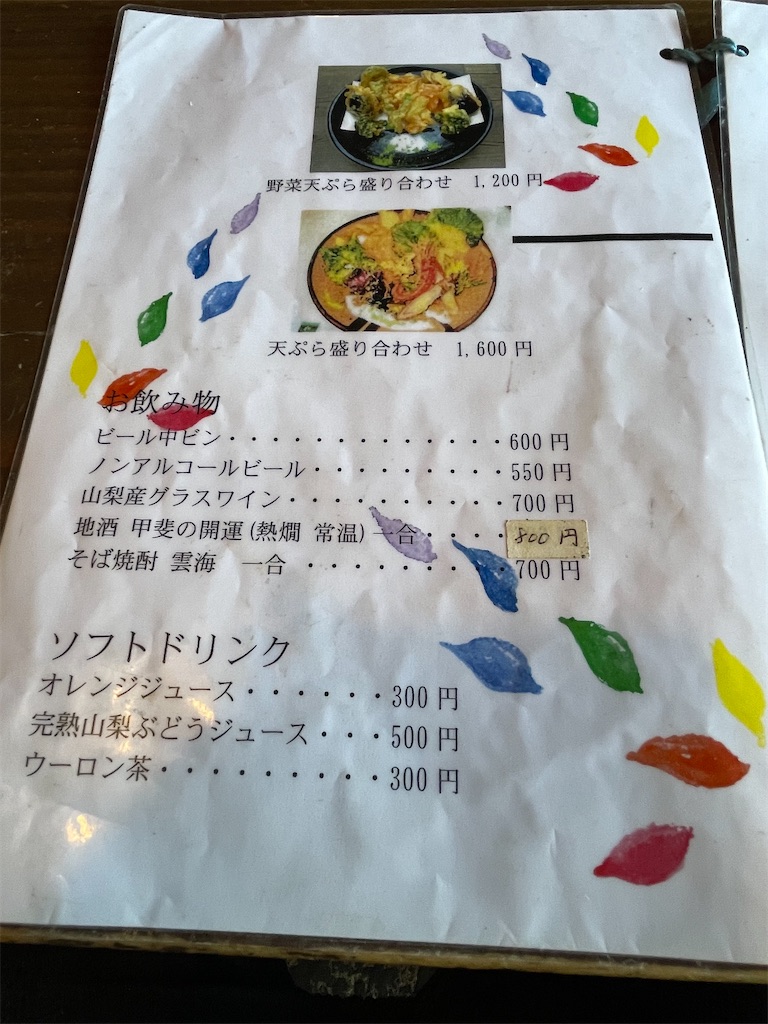 野菜天ぷら盛り合わせ 1,200円
天ぷら盛り合わせ 1,600円
お飲み物
ビール中ビン・・・・・・・・・・・・・600円
ノンアルコールビール・・・・・・・・・550円
山梨産グラスワイン・・・・・・・・・・700円
地酒 甲斐の開運(熱燗 常温)一合・・・・800円
そば焼酎 雲海 一合 ・・・・・・・・700円
ソフトドリンク
オレンジジュース・・・・・・300円
完熟山梨ぶどうジュース・・・500円
ウーロン茶・・・・・・・・・300円